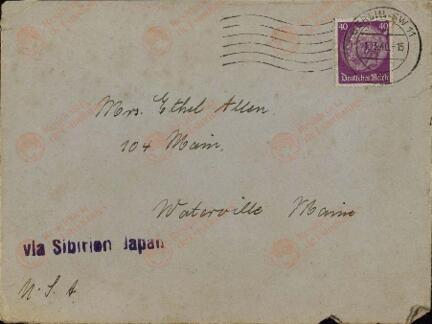 BERLIN SW 11
40 40
Deutsches Reich
Mrs. Ethel Allen
104 Main,
Waterville Maine
via Sibirien Japan
U. S. A